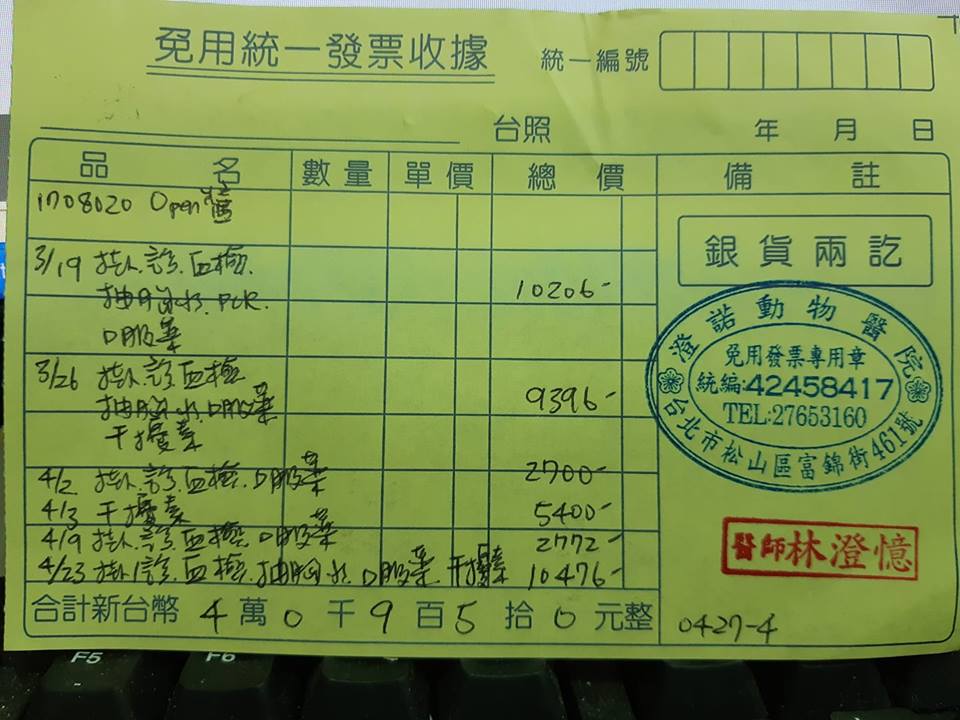 免用統一發票收據
統一編號
台照 年 月 日
品 名 數量 單價 總 價 備 註
1708020 Open 蛙
3/19 掛.診.血檢.
抽胸水. PCR. 10206-
口服藥
3/26 掛.診.血檢
抽胸水.口服藥 9396-
干擾素
4/2 掛.診.血檢.口服藥 2700-
4/3 干擾素 5400-
4/9 掛.診.血檢.口服藥 2772-
4/23 掛.診.血檢.抽胸水.口服藥.干擾素 10476-
合計新台幣 4 萬 0 千 9 百 5 拾 0 元整
銀貨兩訖
澄諾動物醫院
免用發票專用章
統編:42458417
TEL:27653160
台北市松山區富錦街461號
醫師林澄憶
0427-4
F5 F6